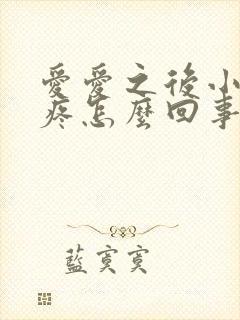 愛愛之後小
疼怎麼回事
藍寞寞